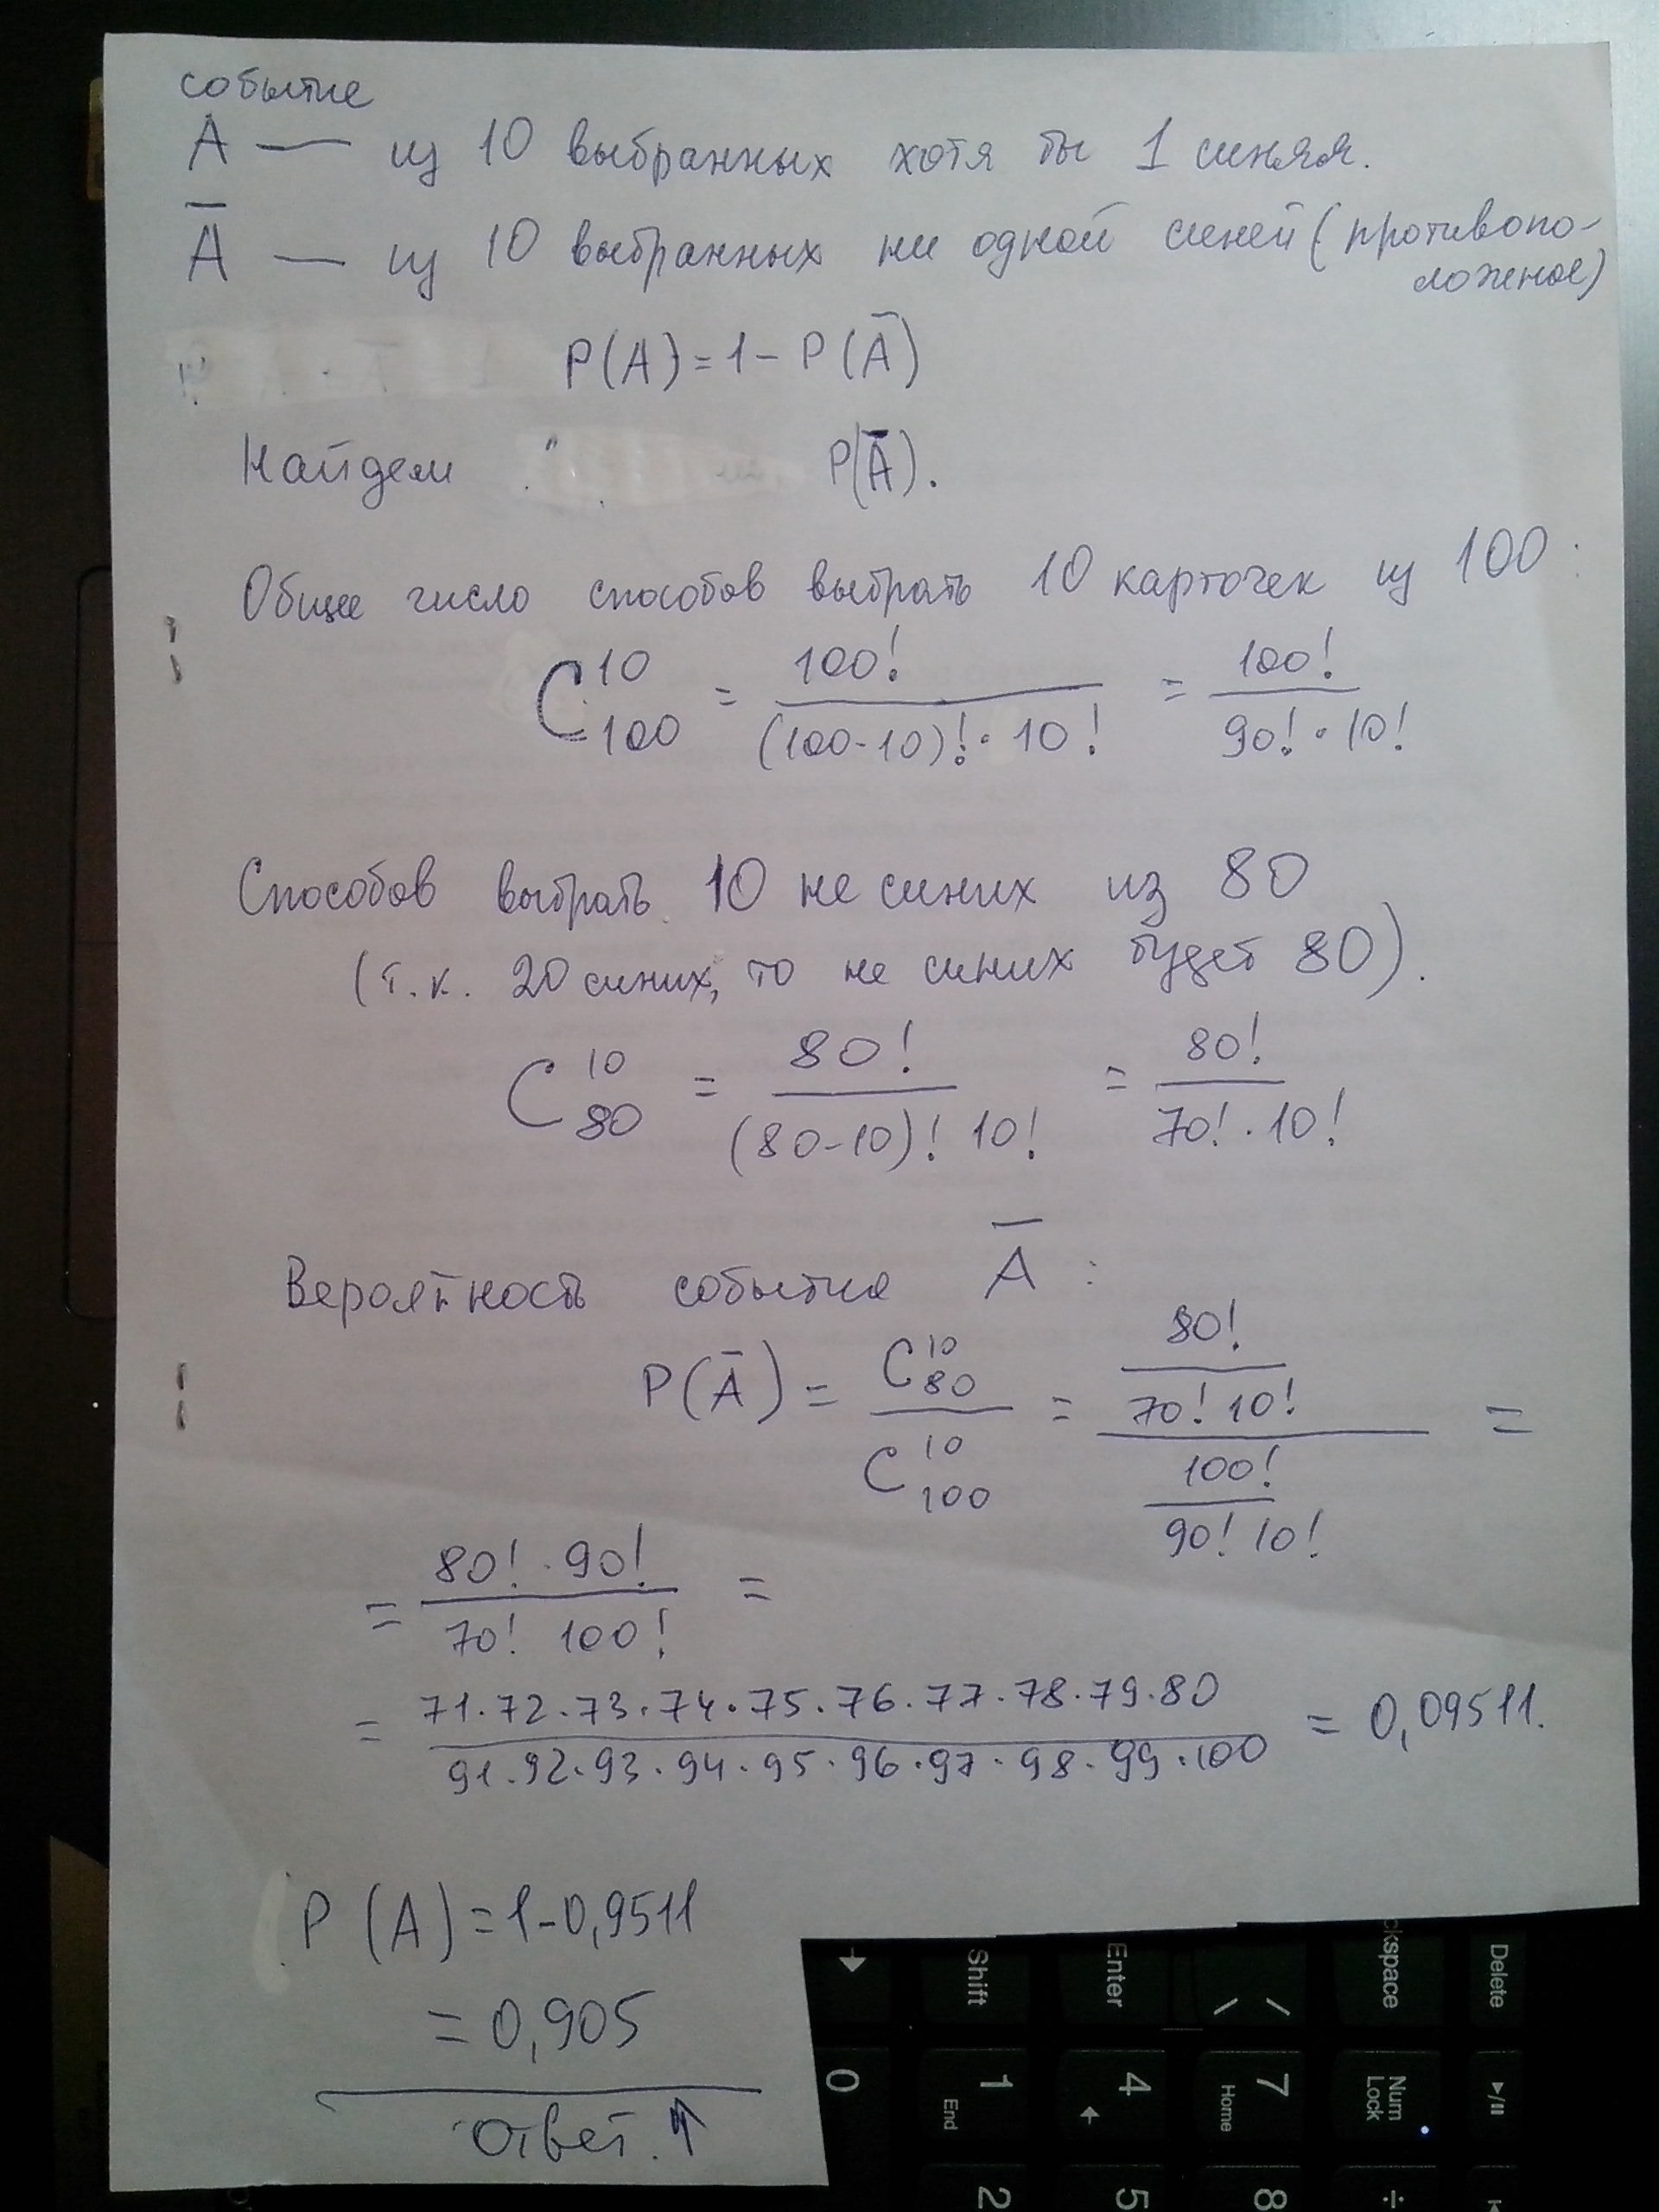 событие
A — из 10 выбранных хотя бы 1 синяя.
Ā — из 10 выбранных ни одной синей (противопо-
ложное)
P(A) = 1 - P(Ā)
Найдем P(Ā).
Общее число способов выбрать 10 карточек из 100:
C₁₀₀¹⁰ = 100! / ((100-10)! · 10!) = 100! / (90! · 10!)
Способов выбрать 10 не синих из 80
(т.к. 20 синих, то не синих будет 80).
C₈₀¹⁰ = 80! / ((80-10)! 10!) = 80! / (70! · 10!)
Вероятность события Ā :
P(Ā) = C₈₀¹⁰ / C₁₀₀¹⁰ = (80! / (70! 10!)) / (100! / (90! 10!)) =
= (80! · 90!) / (70! 100!) =
= (71·72·73·74·75·76·77·78·79·80) / (91·92·93·94·95·96·97·98·99·100) = 0,09511.
P(A) = 1 - 0,9511
= 0,905
Ответ. ↑
Shift
Enter
ckspace
Delete
0
1
End
4
7
Home
Num
Lock
2
5
8
÷